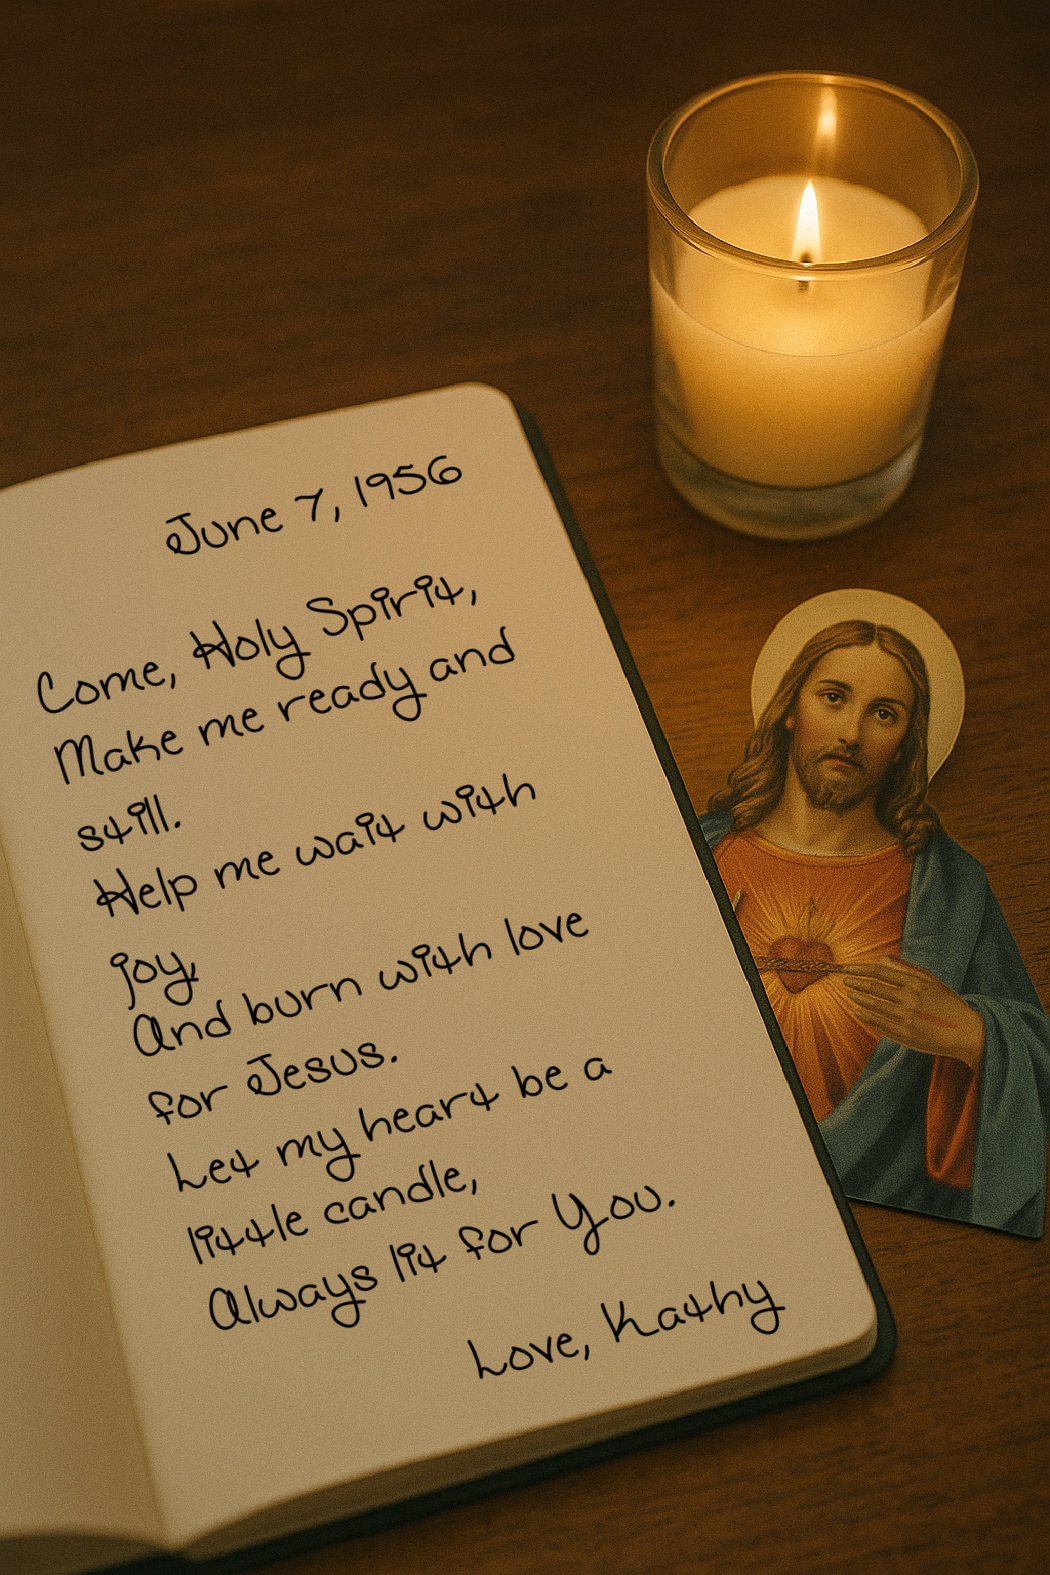 June 7, 1956
Come, Holy Spirit,
Make me ready and
still.
Help me wait with
joy,
And burn with love
for Jesus.
Let my heart be a
little candle,
Always lit for You.
Love, Kathy